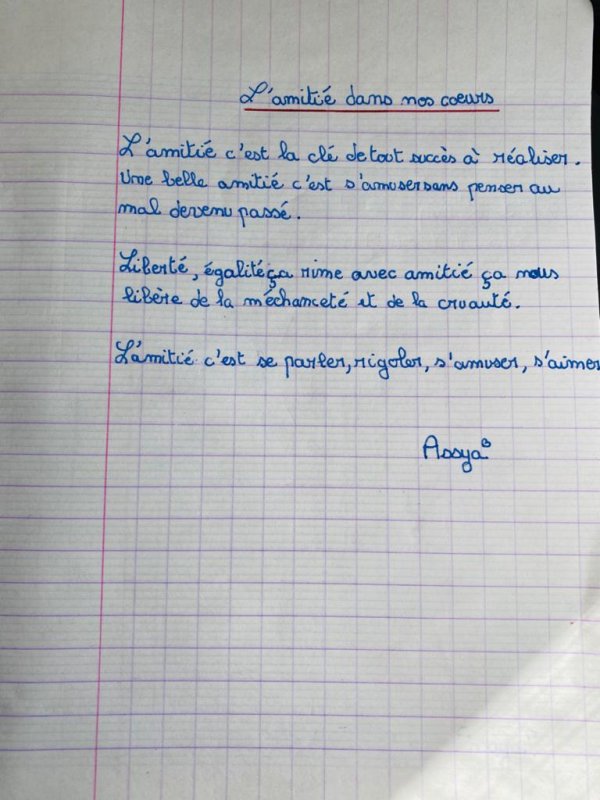 L'amitié dans nos coeurs
L'amitié c'est la clé de tout succès à réaliser.
Une belle amitié c'est s'amuser sans penser au
mal devenu passé.
Liberté, égalité ça rime avec amitié ça nous
libère de la méchanceté et de la cruauté.
L'amitié c'est se parler, rigoler, s'amuser, s'aimer
Assya